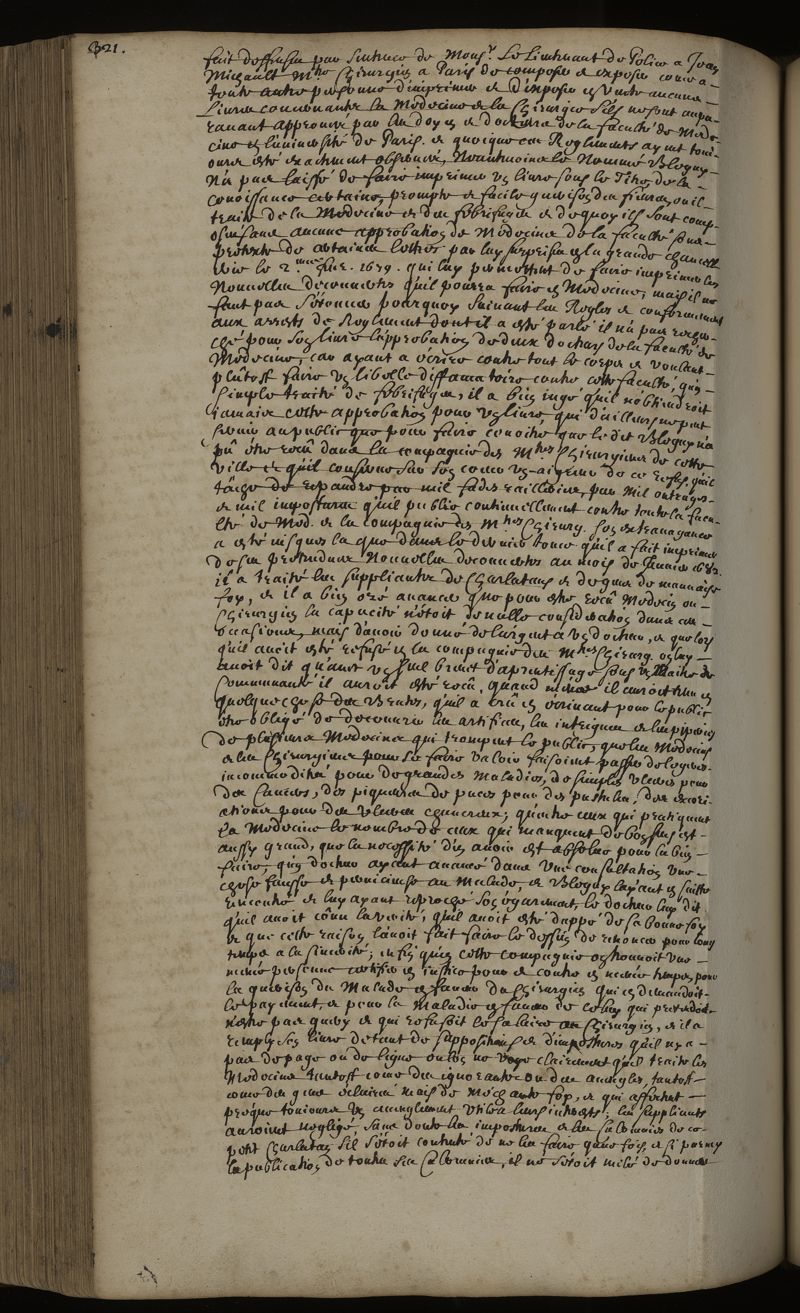 321.
fait deffenses par sentence de Mons.r Le Lieutenant de Police a Jean
Michault M.tre Chirurgien a Paris de composer et exposer comme a
toute autre personne d'imprimer et d'exposer en vente aucuns
Livres concernants la Medecine et la Chirurgie sils ne sont aupa-
ravant approuvé par un doyen et docteurs de la faculté de Mede-
cine en l'université de Paris. et quoique ces Reglements ayent touj-
ours esté exactement observés, Neantmoins le Nommé Blegny
N'a pas laissé de faire imprimer un livre sous le Titre de la
connoissance certaine, prompte et facile guerison des fievres, ou il
traite de la Medecine et des febrifuges et de quoy ils sont comp-
osés sans aucune approbation de Medecins de la faculté sous
pretexte de certaines lettres par luy surprises en la grande chancell
erie le 2.me 1679. qui luy permettent de faire imprimer les
Nouvelles decouvertes qu'il pourra faire en Medecine, mais il ne
faut pas s'etonner pourquoy suivant les Regles et conformement
aux arrests de Reglement dont il a esté parlé il n'a pas recher-
ché pour son livre l'approbation de deux docteurs de la faculté de
Medecine, car ayant a ecrire contre tout le corps et voulant
plûtost faire un libelle diffamatoire contre cette faculté, qu'un
simple traité de febrifuges, il a bien jugé qu'il n'obtiendroit
jamais cette approbation pour un livre, qui d'ailleurs ne peut
servir au public que pour faire connoitre que le dit Blegny n'a
pû être reçû dans la compagnie des M.tres Chirurgiens de cette
ville et qu'il conserve dans son coeur un aigreur de ce refus qu'il
tâche de repandre par mil fades railleries, par mil outrages
et mil impostures qu'il publie continuellement contre toute la facu-
lté de Med. et la compagnie des M.tres Chirurg. son extravagance
a esté jusques la que dans le dernier tome qu'il a fait imprimer
de ses pretendues Nouvelles decouvertes au mois de Janvier 1682.
il a traité les suppliants de Charlatans et de gens de mauvaise
foy, et il a bien osé avancer que pour etre reçû Medecin ou
Chirurgien la capacité n'etoit de nulle consideration dans ces
occasions, mais d'avoir donné de l'argent a un docteur, et que lors
qu'il avoit esté refusé en la compagnie des M.tres Chirurg. on luy
avoit dit qu'avec un seul brevet d'aprentissage sous un Maitre de
Communauté il auroit esté reçû, quand même il auroit
quelque chose des Ventes, qu'il a crû en ecrivant pour le public
etre obligé de decouvrir les artifices, les intrigues et
de plusieurs Medecins qui trompent le public, que les Medecins
et les Chirurgiens pour se faire valoir faisoient passer de legeres
incommodités pour de grandes Maladies, de simples ulceres pour
des Cancers, des piqueures de puces pour des pustules, des excori-
ations pour des ulceres chancreux; qu'entre ceux qui pratiquent
la Medecine le nombre de ceux qui manquent de bon sens est
aussy grand, que la necessité d'en avoir est absolue pour la bien
faire, qu'un docteur ayant avancé dans une consultation une
chose fausse et pernicieuse au Malade, et Blegny l'ayant en suitte
rencontré et luy ayant reproché son egarement, le docteur luy dit
qu'il avoit connu la verité, qu'il avoit esté dappé de sa bonne foy
et que cette raison l'avoit fait faire le dessein de renoncer pour long
temps a la sincerité; enfin qu'en cette compagnie on trouvoit une
même personne certifier en justice pour et contre en même temps, pour
la guerison du Malade en faveur du Chirurgien qui en demandoit
le payement, et pour la Maladie en faveur de celuy qui pretendoit
n'estre pas guery et qui refusoit le salaire au Chirurgien, et il a
remply son livre de tant de suppositions et d'impostures qu'il n'y a
pas de page ou de ligne ou l'on ne voye clairement qu'il traite les
Medecins tantost come des ignorants ou des aveugles, tantost
come des gens eclairés mais de mechante foy, et qui affectent
presque toujours un aveuglement utile a leurs interests; les suppliants
auroient negligé sans doute les impostures et les calomnies de ce
petit Charlatan s'il s'étoit contenté de ne les faire qu'une fois, et si parmy
la publication de toutes ses calomnies, il ne s'étoit melé de donner